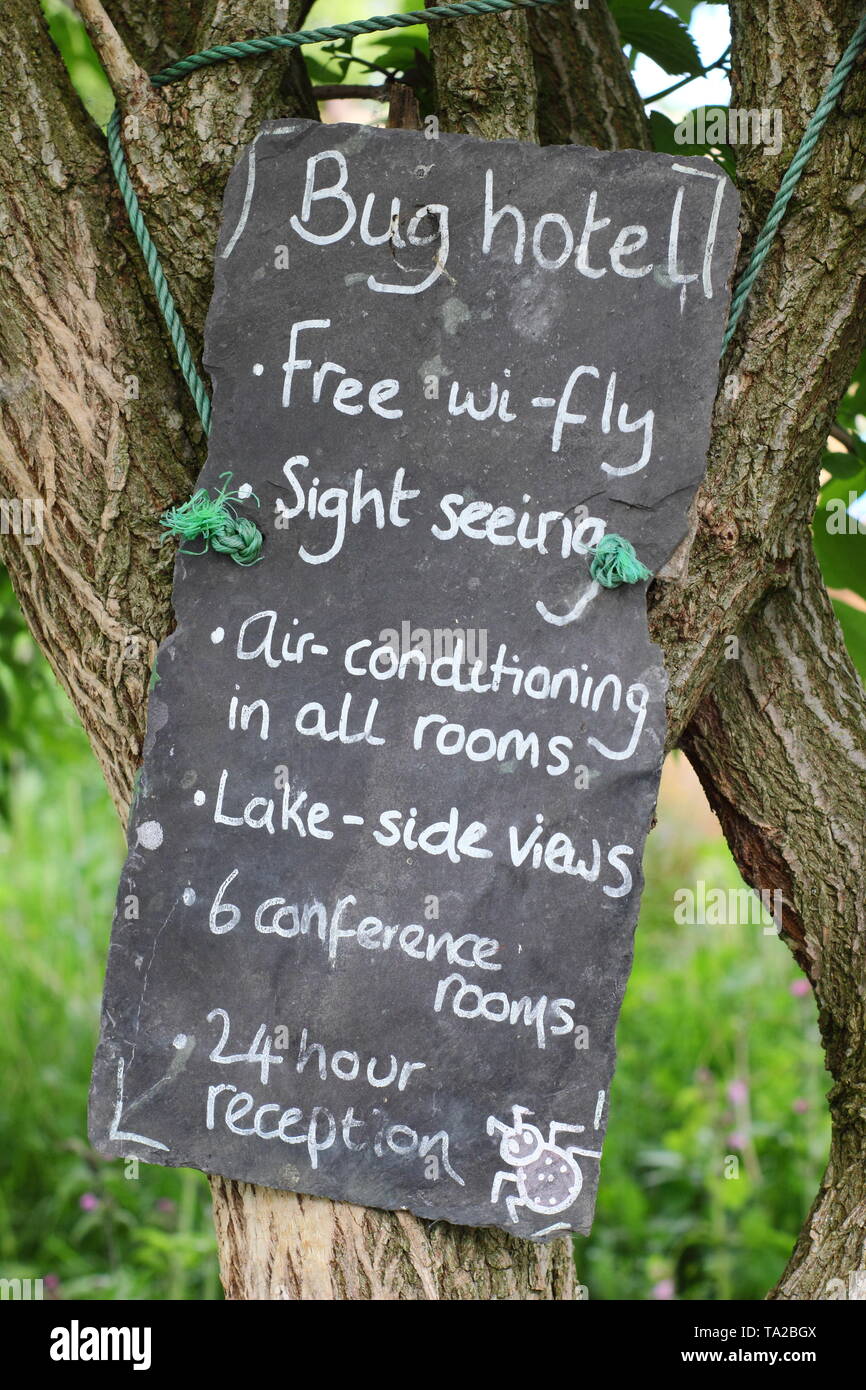 Bug hotel
• Free wi-fly
• Sight seeing
• Air-conditioning
in all rooms
• Lake-side views
• 6 conference
rooms
• 24 hour
reception
alamy
Image ID: TA2BGX
www.alamy.com